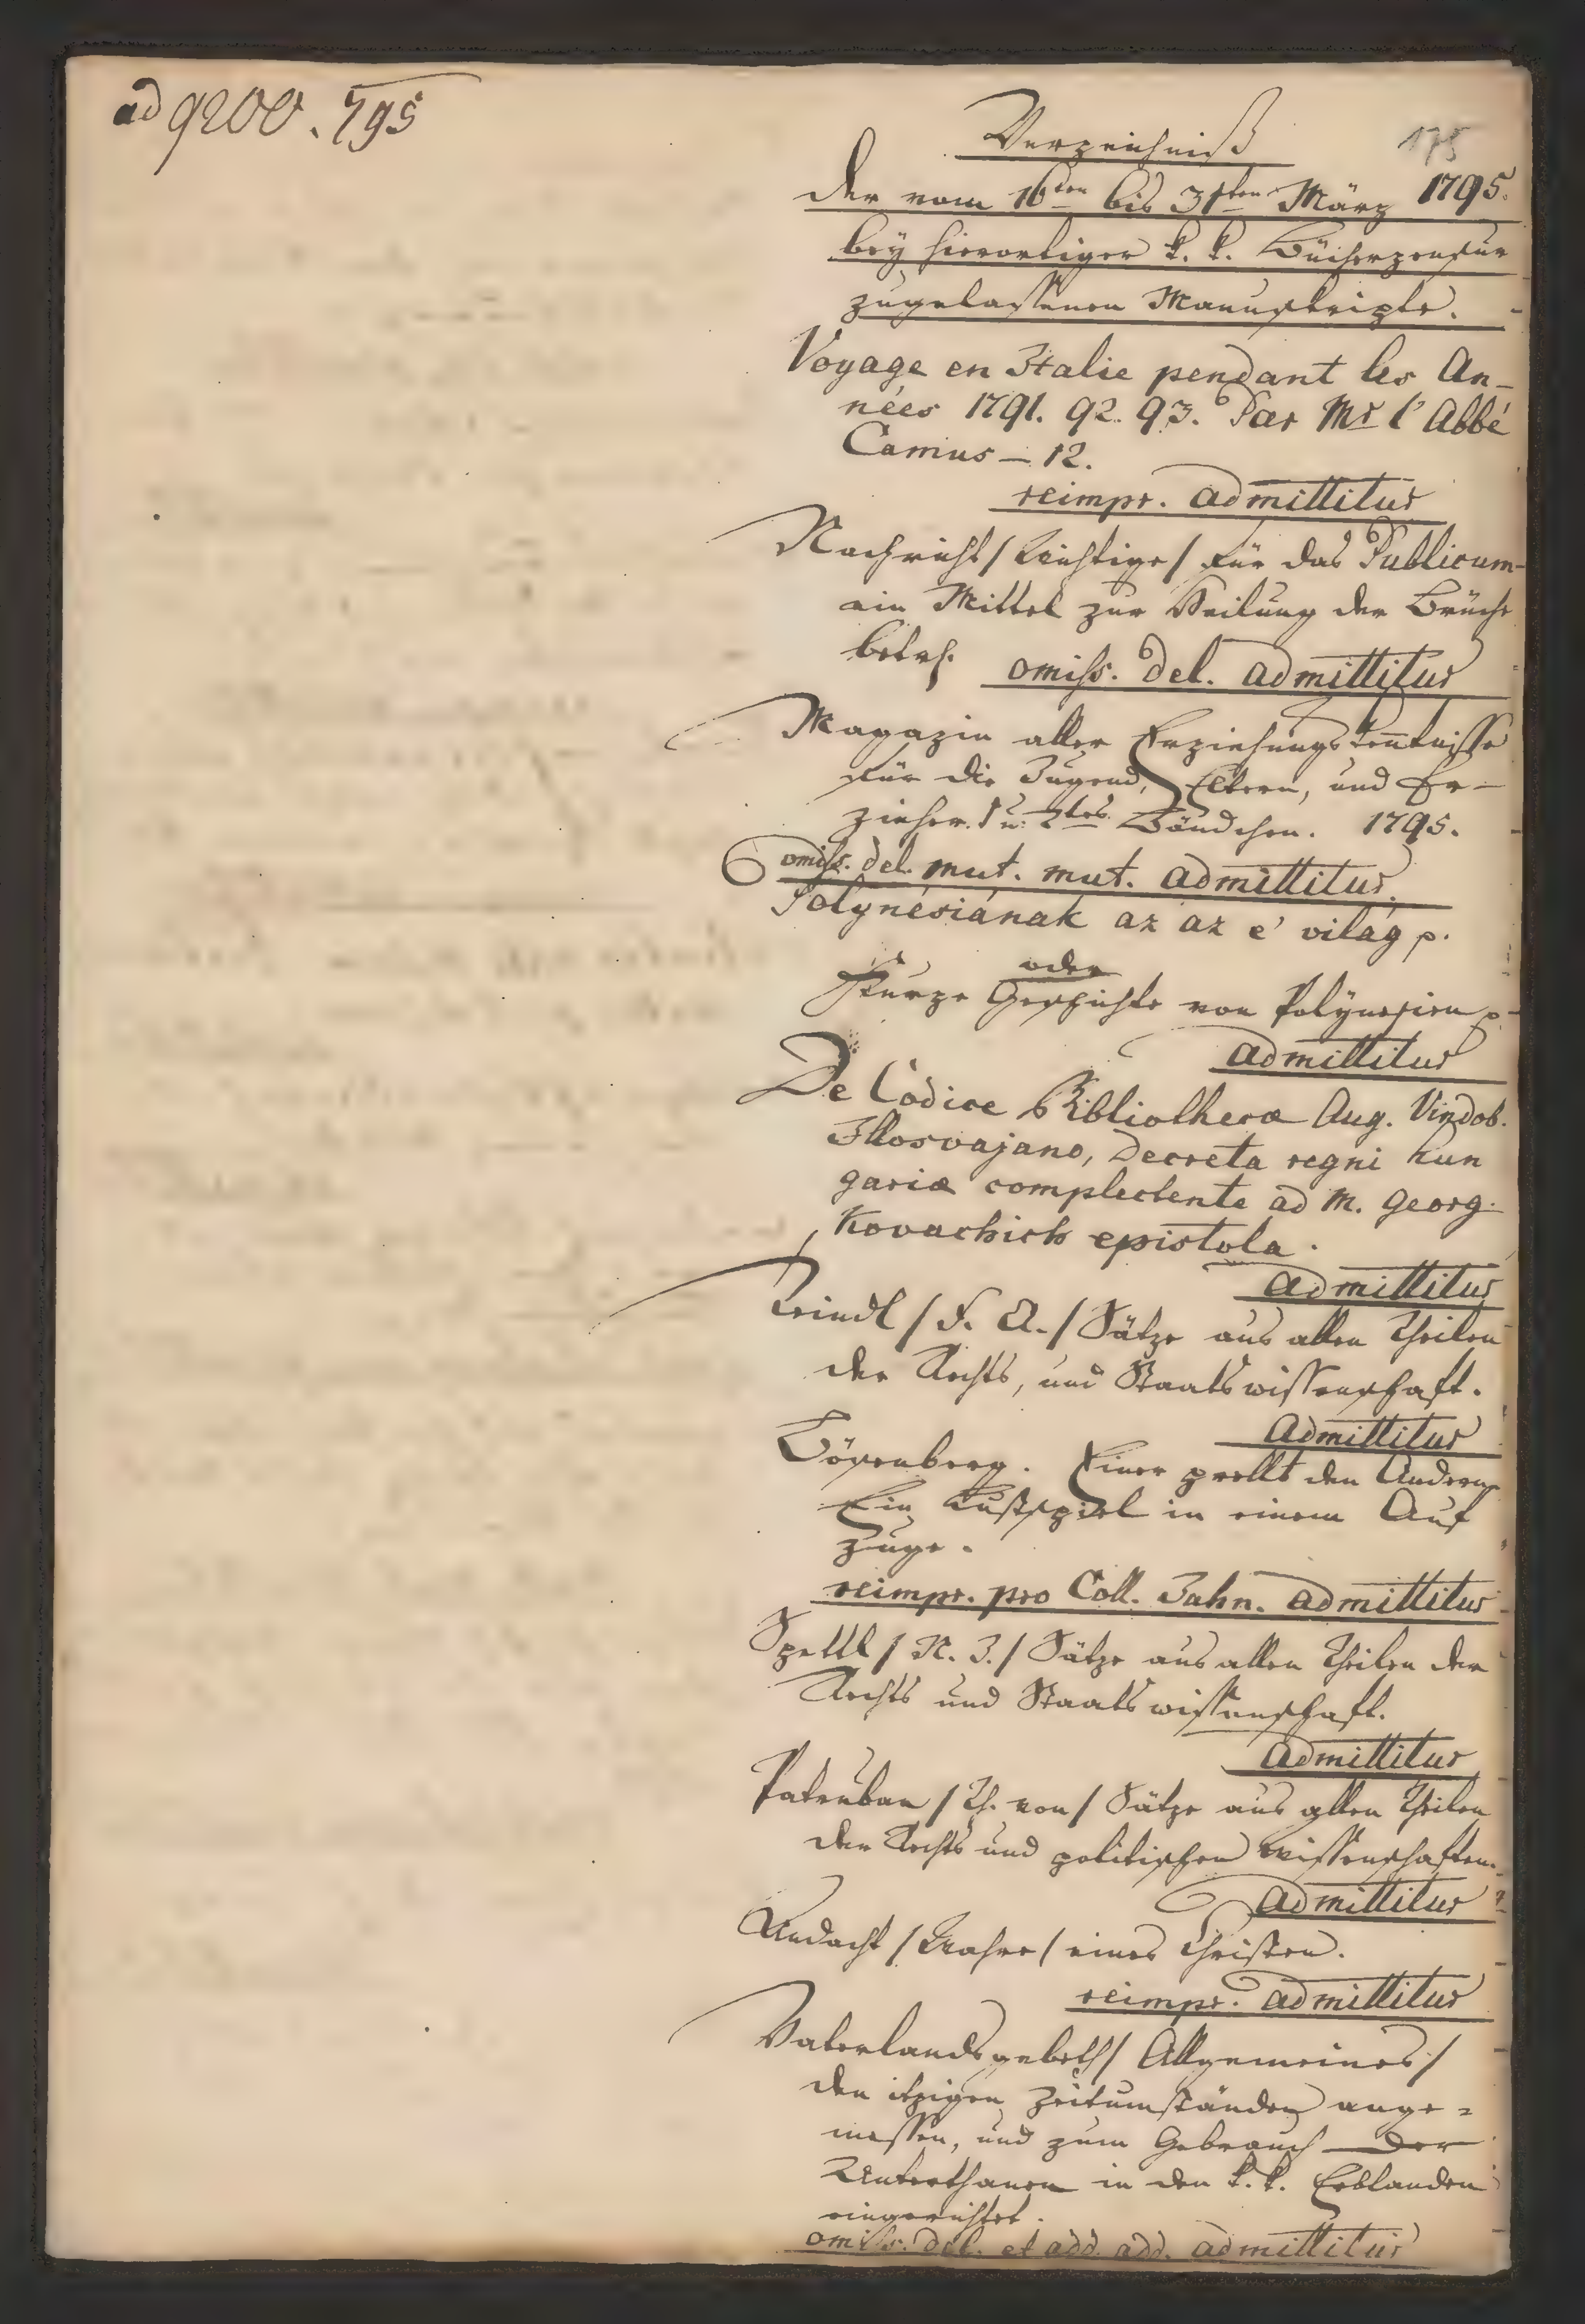 ad 9200. 795
175
Verzeichniß
der vom 16ten bis 31ten März 1795.
bey hierortiger k. k. Bücherzensur
zugelassenen Manuskripte.
Voyage en Italie pendant les An-
nées 1791. 92. 93. Par Mr l'Abbé
Camus – 12.
reimpr. admittitur
Nachricht / Wichtige / für das Publicum
ein Mittel zur Heilung der Brüche
betrf. omiss. del. admittitur
Magazin aller Erziehungskenntnisse
für die Jugend, Eltern, und Er-
zieher. 1 u. 2tes Bändchen. 1795.
omiss. del. mut. mut. admittitur.
Polynésiának az az e' világ p.
oder
Kurze Geschichte von Polynesien p
admittitur
De Codice Bibliothecæ Aug. Vindob.
Illosvajano, Decreta regni hun
gariæ complectente ad M. Georg.
Kovachich epistola.
admittitur
/ F. A. / Sätze aus allen Theilen
der Rechts, und Staatswissenschaft.
Admittitur
Bösenberg. Einer prellt den Andern
Ein Lustspiel in einem Auf
zuge.
reimpr. pro Coll. Jahn. admittitur
Spettl / N. J. / Sätze aus allen Theilen der
Rechts und Staatswissenschaft.
admittitur
Patruban / Th. von / Sätze aus allen Theilen
der Rechts und politischen Wissenschaften.
admittitur
Andacht / Wahre / eines Christen.
reimpr. admittitur
Vaterlandsgebeth / Allgemeines /
den itzigen Zeitumständen ange=
messen, und zum Gebrauch der
Unterthanen in den k. k. Erblanden
eingerichtet.
omiss. del. et add. add. admittitur